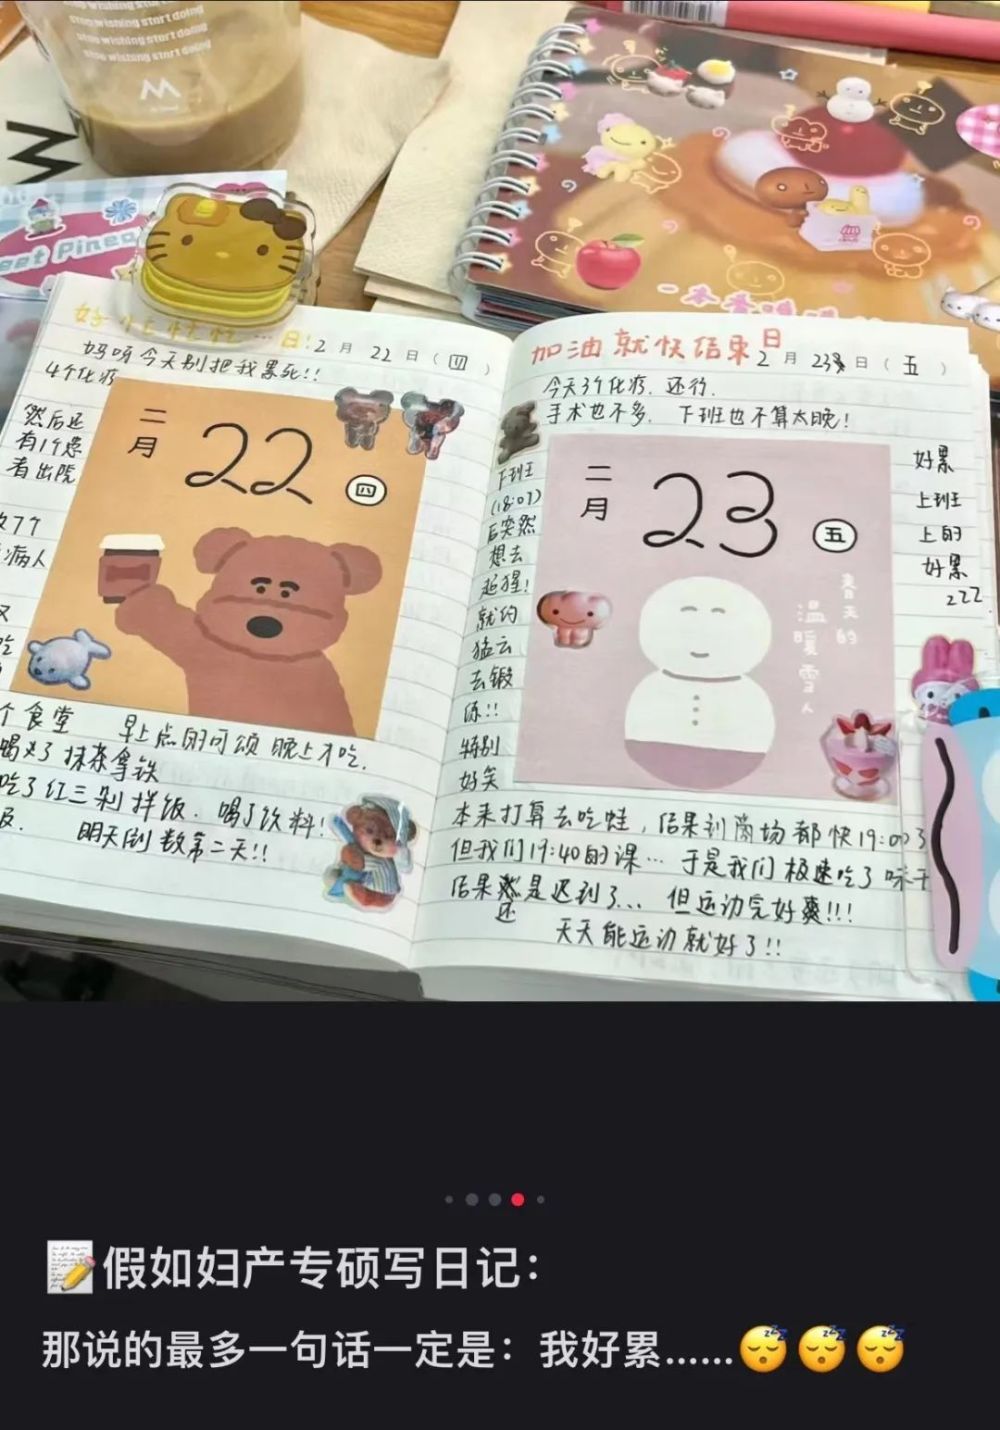 stop wishing start doing
stop wishing start doing
stop wishing start doing
M
eet Pinea
好忙忙忙……日!
2月22日(四)
妈呀今天别把我累死!!
4个化疗
然后还
有1个患
者出院
7个
病人
二月
22
四
个食堂 早上点的可颂 晚上才吃.
喝了抹茶拿铁
吃了红三剁拌饭. 喝了饮料!
明天倒数第二天!!
加油就快结束日
2月23日(五)
今天3个化疗. 还行.
手术也不多. 下班也不算太晚!
下班
(18:07)
后突然
想去
超猩!
就约
猛云
去锻
炼!!
特别
好笑
二月
23
五
春天的
温暖雪人
好累
上班
上的
好累
zzz.
本来打算去吃蛙, 结果到商场都快19:00了
但我们19:40的课… 于是我们极速吃了味千
结果还是迟到了... 但运动完好爽!!!
天天能运动就好了!!
📝假如妇产专硕写日记:
那说的最多一句话一定是:我好累......😴😴😴